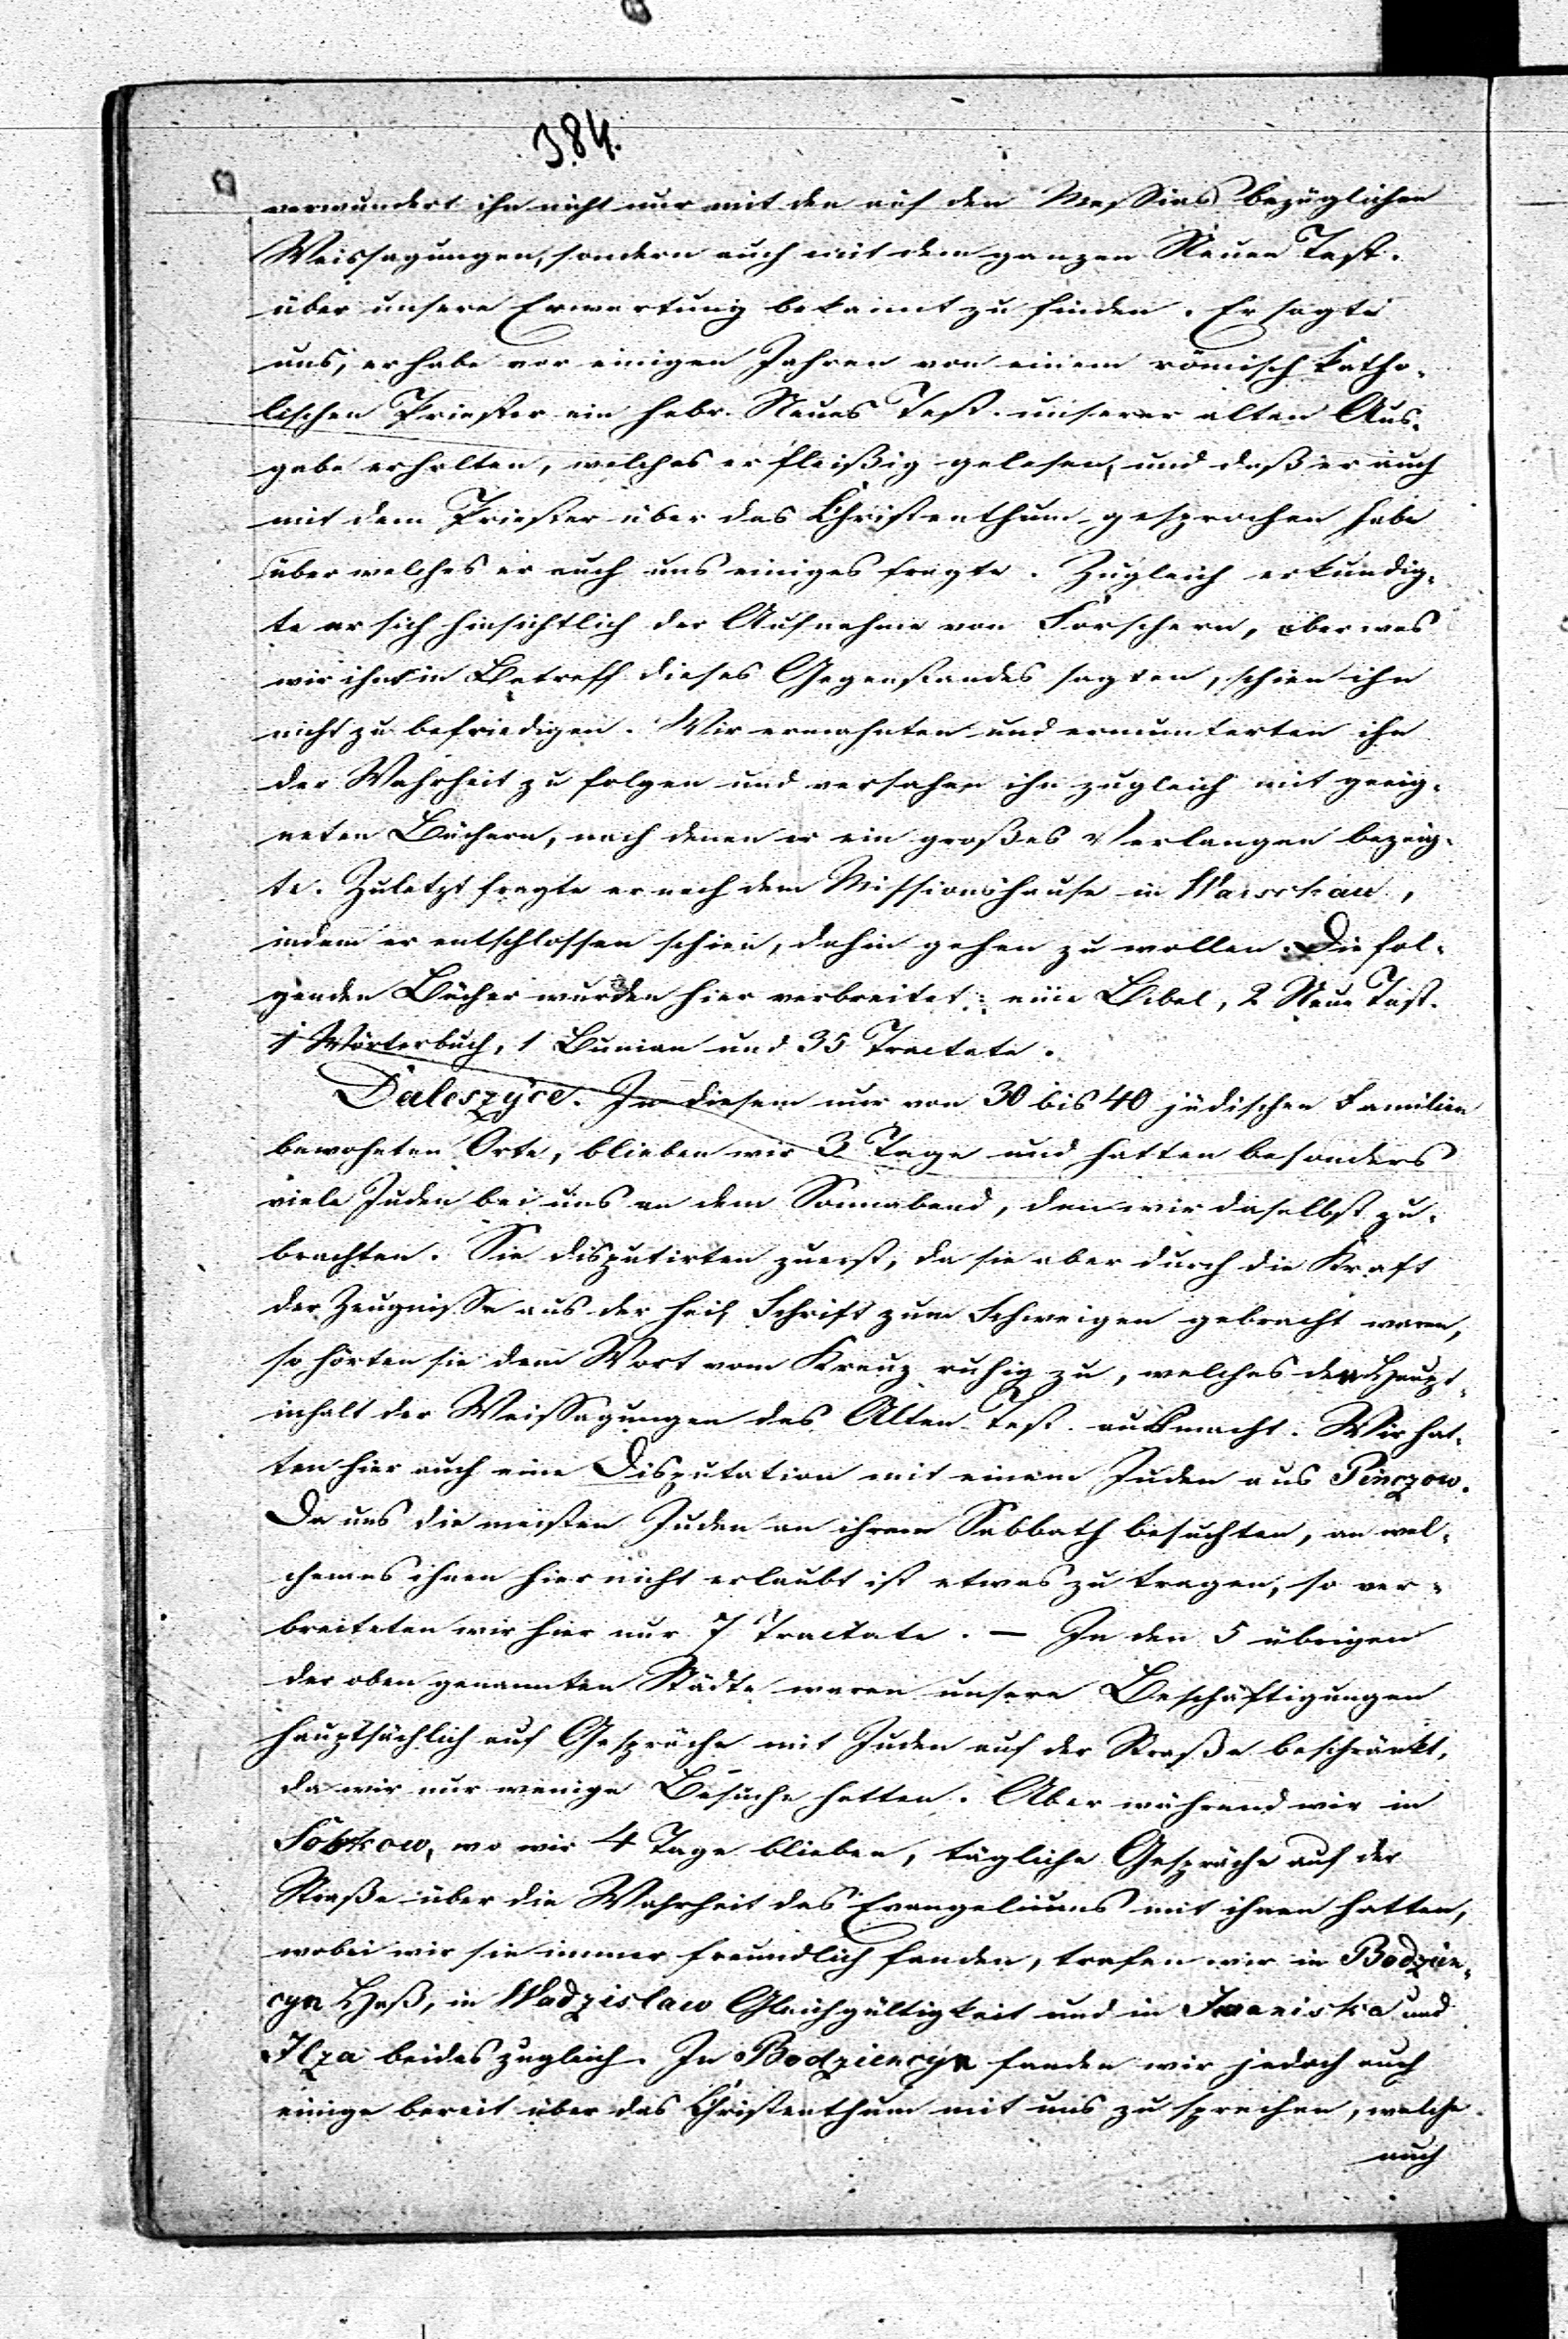 384.
verwundert ihn nicht nur mit den auf den Messias bezüglichen
Weissagungen, sondern auch mit dem ganzen Neuen Test.
über unsere Erwartung bekannt zu finden. Er sagte
uns, er habe vor einigen Jahren von einem römisch katho-
lischen Priester ein hebr. Neues Test. unserer alten Aus-
gabe erhalten, welches er fleißig gelesen, und daß er auch
mit dem Priester über das Christenthum gesprochen habe
über welches er auch uns einiges fragte. Zugleich erkundig-
te er sich hinsichtlich der Aufnahme von Forschern, aber was
wir ihm in Betreff dieses Gegenstandes sagten, schien ihn
nicht zu befriedigen. Wir ermahnten und ermunterten ihn
der Wahrheit zu folgen und versahen ihn zugleich mit geeig-
neten Büchern, nach denen er ein großes Verlangen bezeig-
te. Zuletzt fragte er nach dem Missionshause in Warschau,
indem er entschlossen schien, dahin gehen zu wollen. Die fol-
genden Bücher wurden hier verbreitet: eine Bibel, 2 Neue Test.
1 Wörterbuch, 1 Bunian und 35 Tractate.
Daleszyce. In diesem nur von 30 bis 40 jüdischen Familien
bewohnten Orte, blieben wir 3 Tage und hatten besonders
viele Juden bei uns an dem Sonnabend, den wir daselbst zu-
brachten. Sie disputirten zuerst, da sie aber durch die Kraft
der Zeugnisse aus der heil. Schrift zum Schweigen gebracht waren,
so hörten sie dem Wort vom Kreuz ruhig zu, welches den Haupt-
inhalt der Weissagungen des Alten Test. ausmacht. Wir hat-
ten hier auch eine Disputation mit einem Juden aus Pinczow.
Da uns die meisten Juden an ihrem Sabbath besuchten, an wel-
chem es ihnen hier nicht erlaubt ist etwas zu tragen, so ver-
breiteten wir hier nur 7 Tractate. — In den 5 übrigen
der oben genannten Städte waren unsere Beschäftigungen
hauptsächlich auf Gespräche mit Juden auf der Straße beschränkt,
da wir nur wenige Besuche hatten. Aber während wir in
Sobkow, wo wir 4 Tage blieben, tägliche Gespräche auf der
Straße über die Wahrheit des Evangeliums mit ihnen hatten,
wobei wir sie immer freundlich fanden, trafen wir in Bodzien-
cyn Haß, in Wodzislaw Gleichgültigkeit und in Iwaniska und
Ilza beides zugleich. In Bodziencyn fanden wir jedoch auch
einige bereit über das Christenthum mit uns zu sprechen, welche
auch